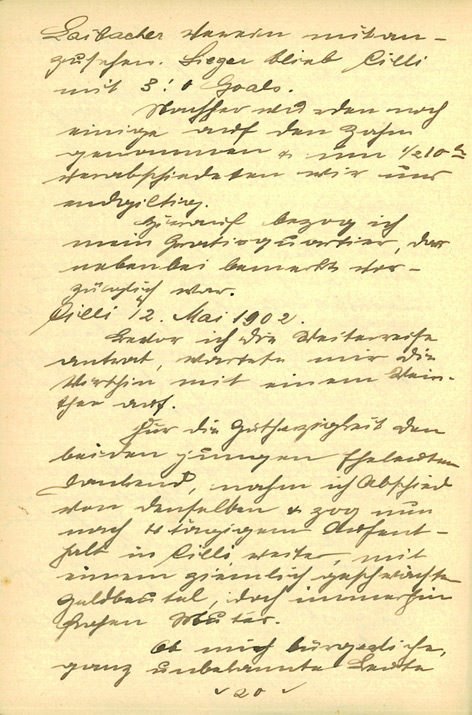 Laibacher Verein mitan-
zusehen. Sieger blieb Cilli
mit 3:0 Goals.
Nachher wurden noch
einige auf den Zahn
genommen & um 1/2 10 h
verabschiedeten wir uns
endgiltig.
Hierauf bezog ich
mein Gratisquartier, das
nebenbei bemerkt vor-
züglich war.
Cilli 12. Mai 1902.
Bevor ich die Weiterreise
antrat, wartete mir die
Wirthin mit einem Wein-
thee auf.
Für die Gutherzigkeit den
beiden jungen Eheleuten
dankend, nahm ich Abschied
von denselben & zog nun
nach tägigem Aufent-
halt in Cilli, weiter, mit
einem ziemlich geschwächten
Geldbeutel, doch immerhin
frohen Mutes.
Ob mich bürgerliche,
ganz unbekannte Leute
20